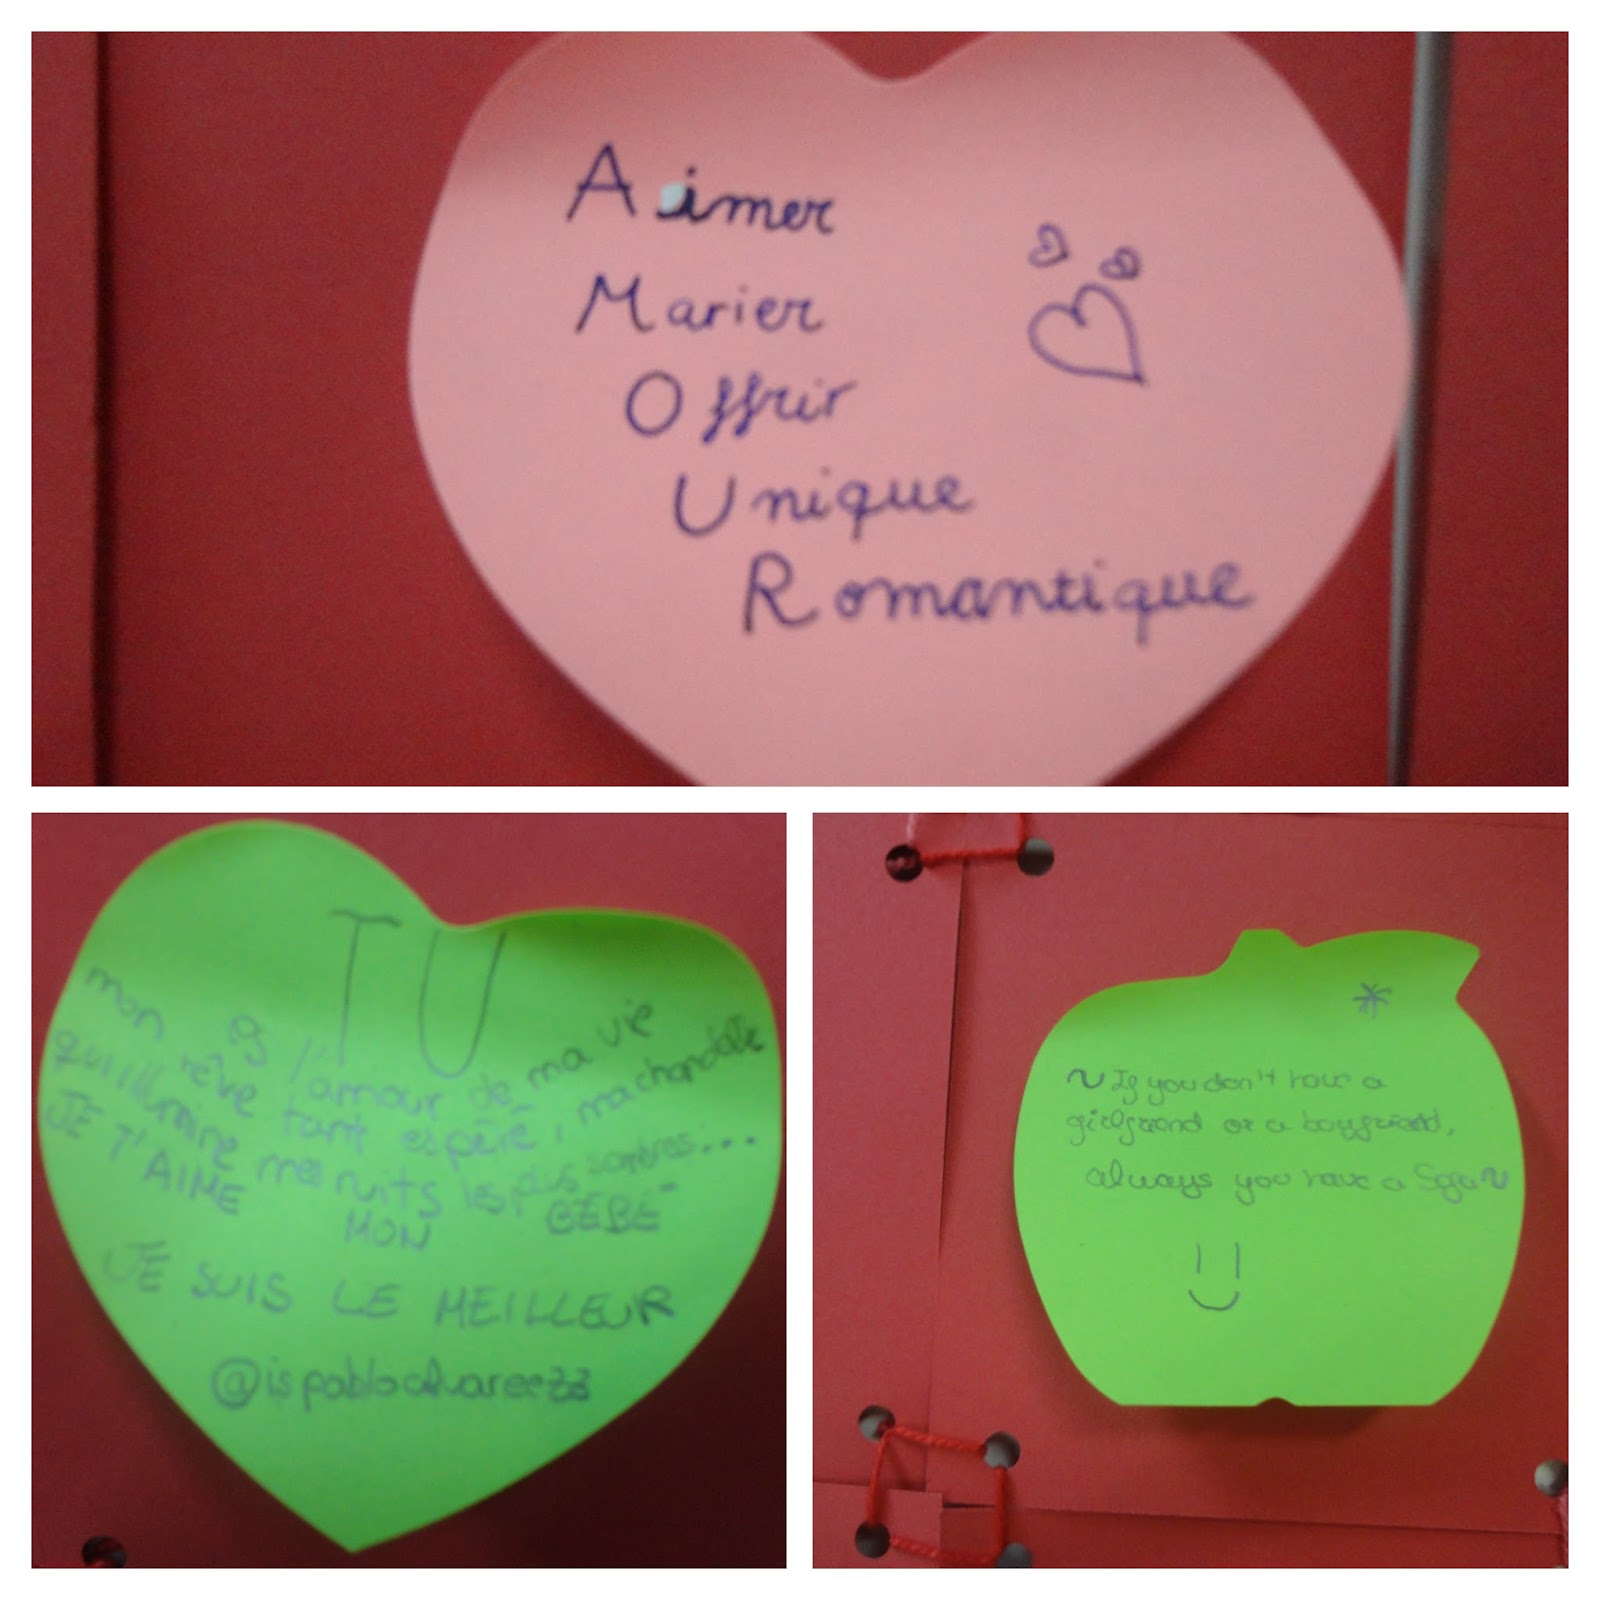 Aimer
Marier
Offrir
Unique
Romantique
TU
es l'amour de ma vie
mon rêve tant espéré, ma chandelle
qui illumine mes nuits les plus sombres...
JE T'AIME MON BÉBÉ
JE SUIS LE MEILLEUR
@ispabloalvareezz
~If you don't have a
girlfriend or a boyfriend,
always you have a Sofa~